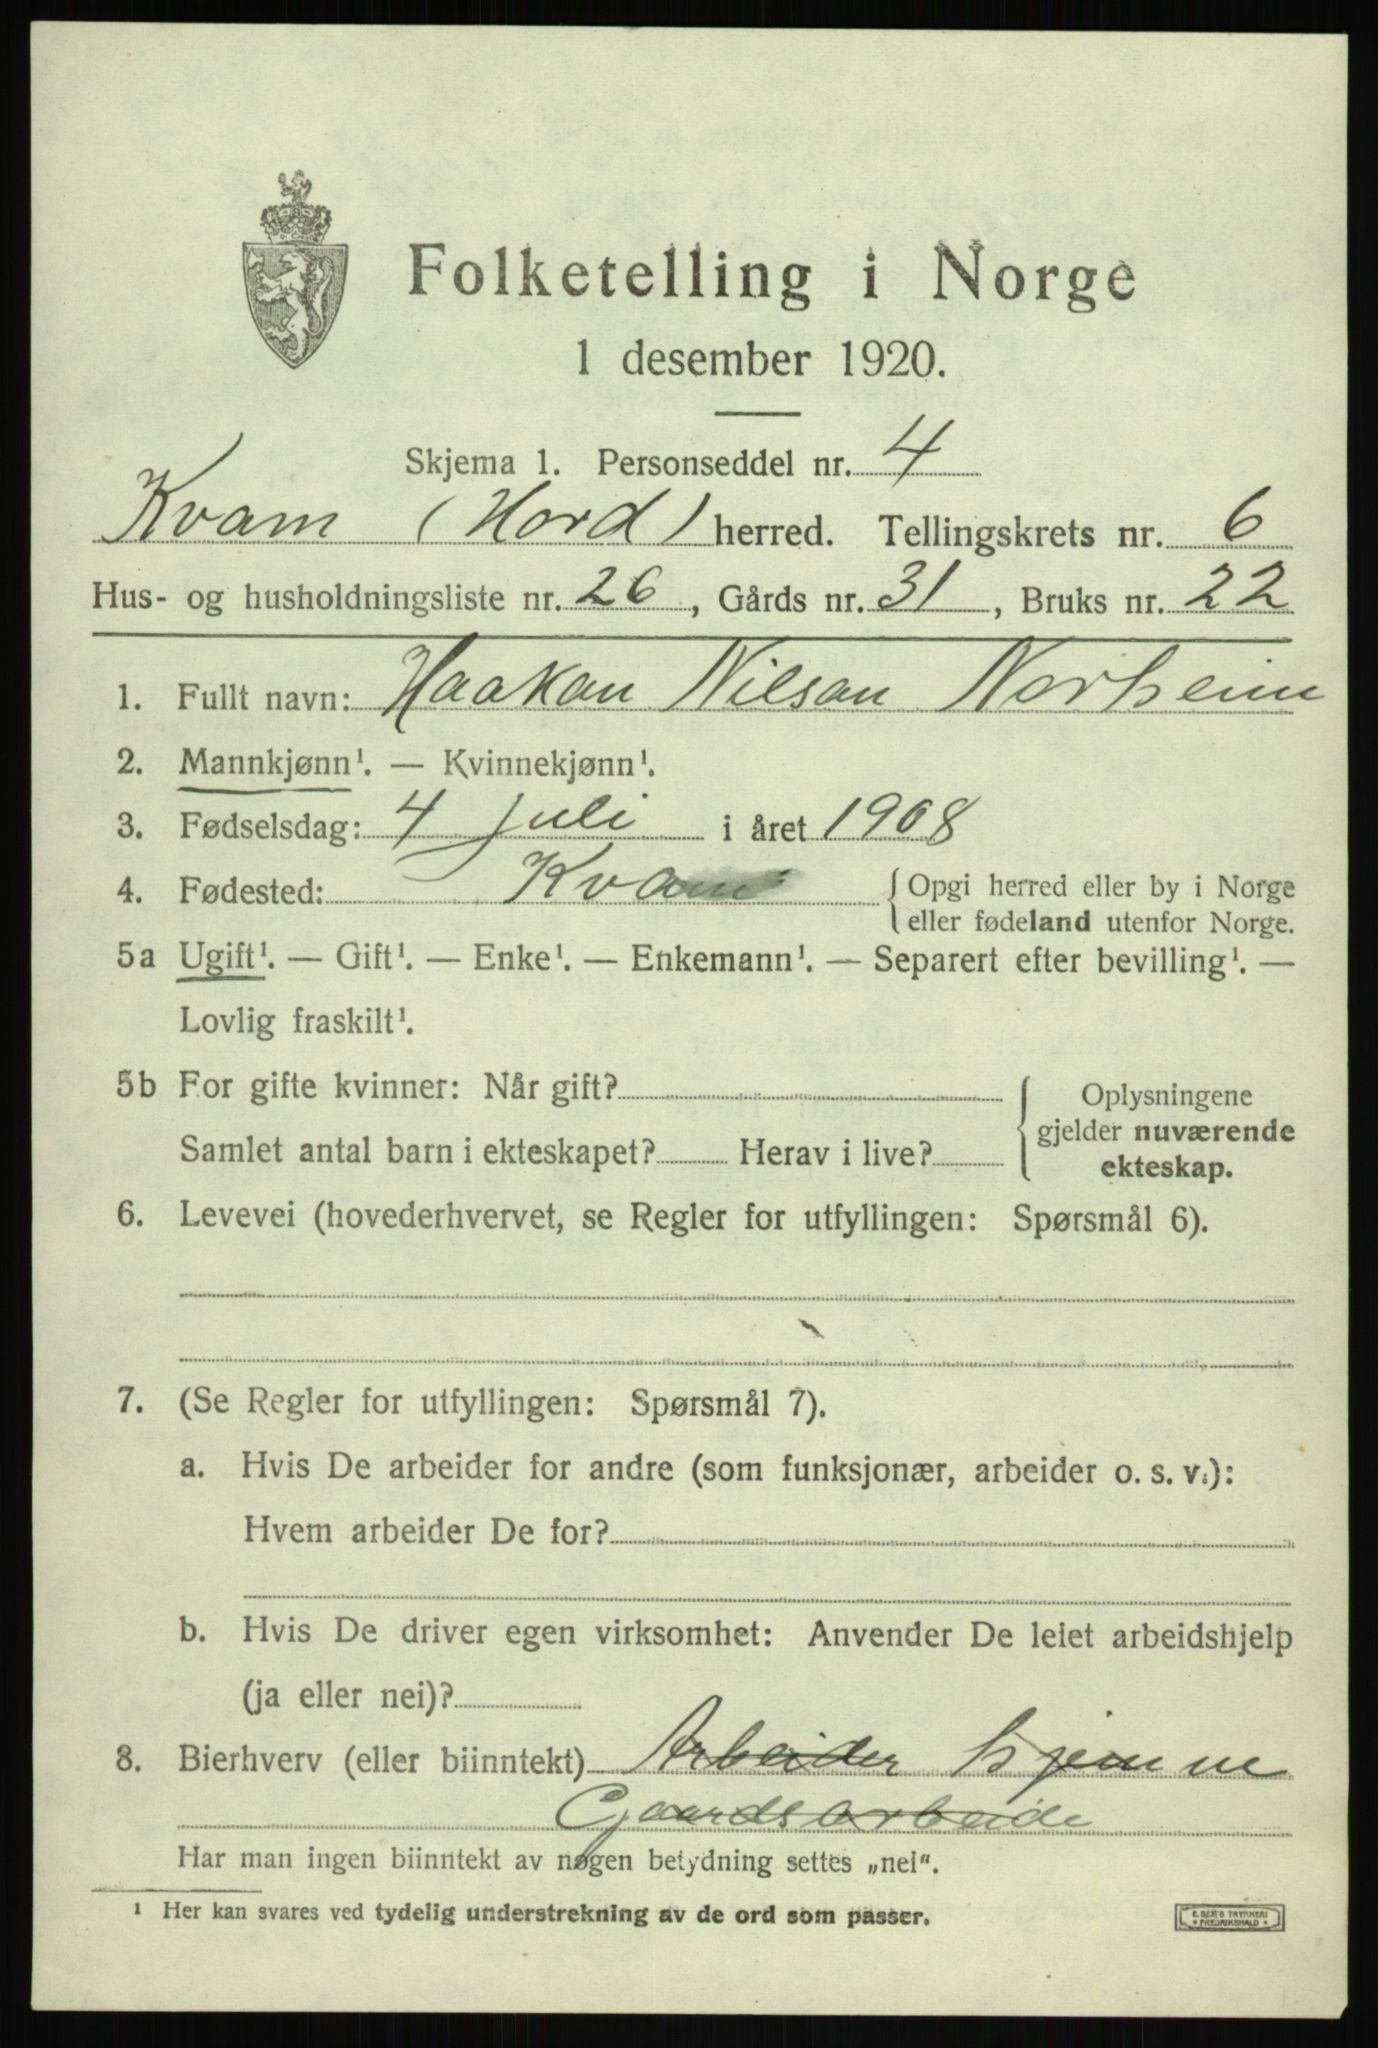 Folketelling i Norge
1 desember 1920.
Skjema 1. Personseddel nr. 4
Kvam (Hord) herred. Tellingskrets nr. 6
Hus- og husholdningsliste nr. 26, Gårds nr. 31, Bruks nr. 22
1. Fullt navn: Haakon Nilson Norheim
2. Mannkjønn¹. — Kvinnekjønn¹.
3. Fødselsdag: 4 juli i året 1908
4. Fødested: Kvam {Opgi herred eller by i Norge
eller fødeland utenfor Norge.
5a Ugift¹. — Gift¹. — Enke¹. — Enkemann¹. — Separert efter bevilling¹. —
Lovlig fraskilt¹.
5b For gifte kvinner: Når gift? {Oplysningene
gjelder nuværende
Samlet antal barn i ekteskapet? Herav i live? ekteskap.
6. Levevei (hovederhvervet, se Regler for utfyllingen: Spørsmål 6).
7. (Se Regler for utfyllingen: Spørsmål 7).
a. Hvis De arbeider for andre (som funksjonær, arbeider o. s. v.):
Hvem arbeider De for?
b. Hvis De driver egen virksomhet: Anvender De leiet arbeidshjelp
(ja eller nei)?
8. Bierhverv (eller biinntekt) Arbeider hjemme
Gaardsarbeide
Har man ingen biinntekt av nogen betydning settes „nei“.
¹ Her kan svares ved tydelig understrekning av de ord som passer.
E. SEM'S TRYKKERI
* FREDRIKSHALD *